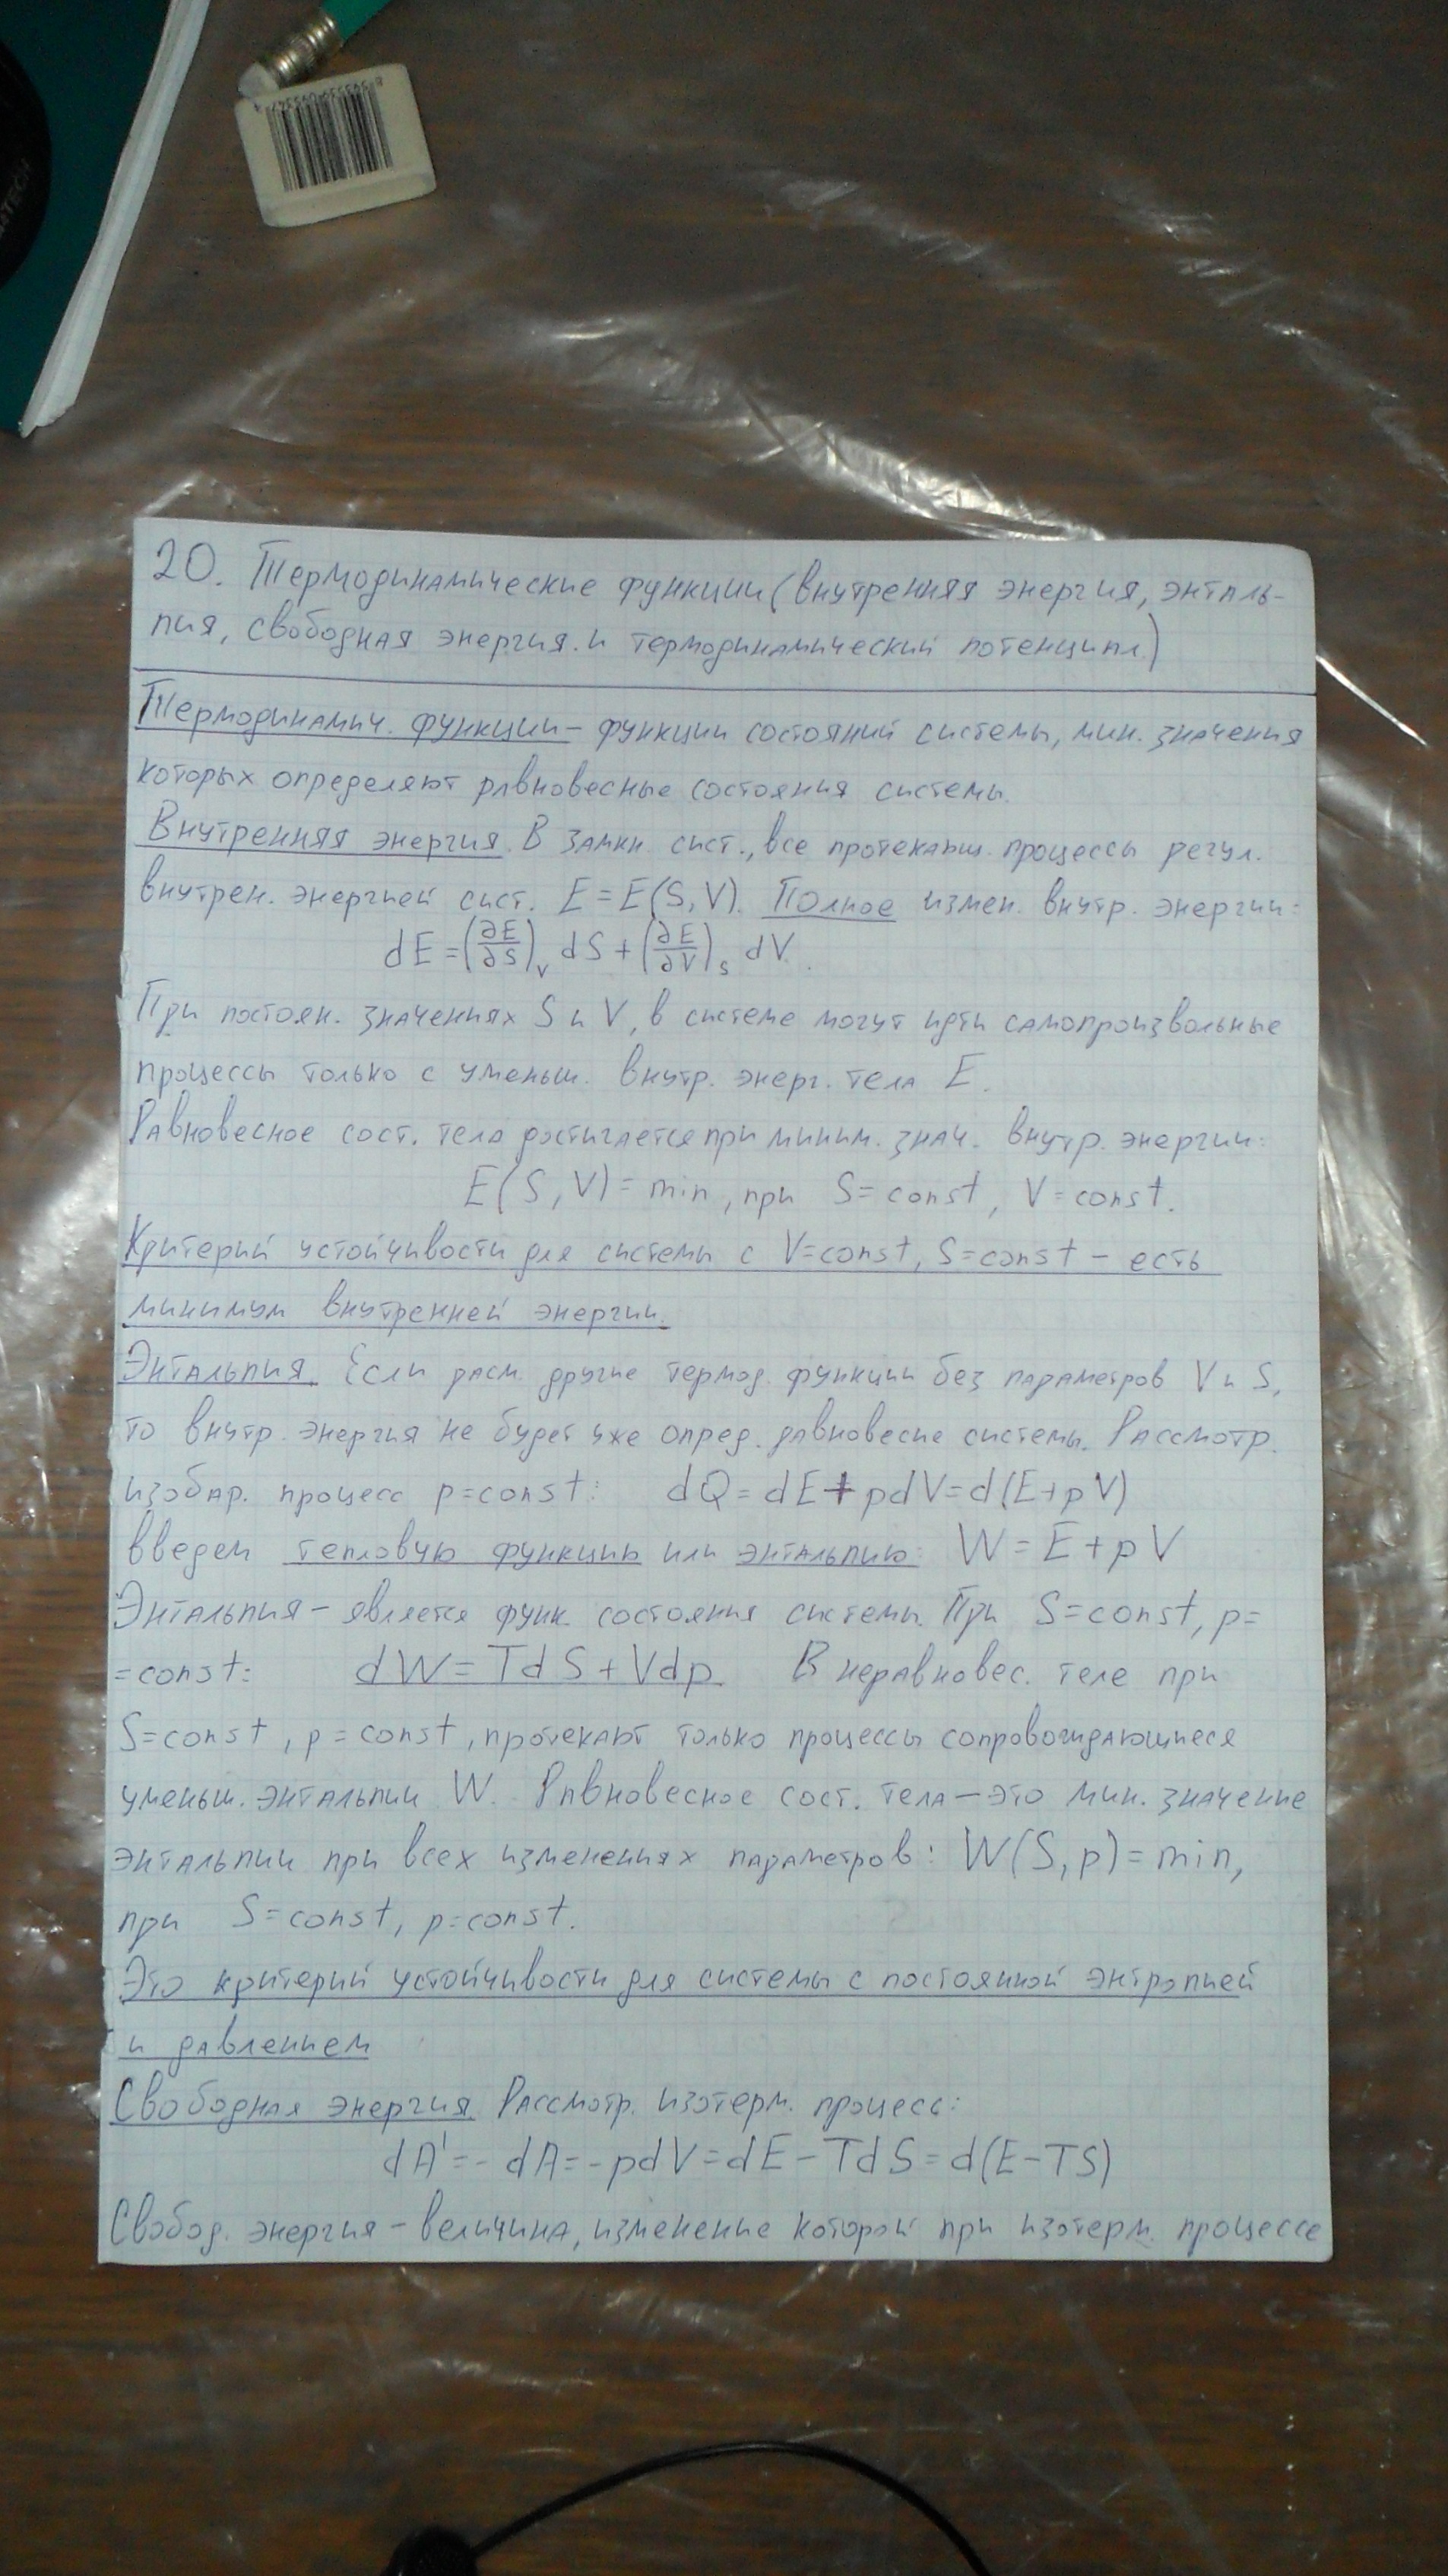 20. Термодинамические функции (внутренняя энергия, энталь-
пия, свободная энергия и термодинамический потенциал)
Термодинамич. функции – функции состояний системы, мин. значения
которых определяют равновесные состояния системы.
Внутренняя энергия. В замкн. сист., все протекающ. процессы регул.
внутрен. энергией сист. E = E(S, V). Полное измен. внутр. энергии:
dE = (∂E/∂S)_V dS + (∂E/∂V)_S dV.
При постоян. значениях S и V, в системе могут идти самопроизвольные
процессы только с уменьш. внутр. энерг. тела E.
Равновесное сост. тела достигается при миним. знач. внутр. энергии:
E(S, V) = min, при S = const, V = const.
Критерий устойчивости для системы с V=const, S=const – есть
минимум внутренней энергии.
Энтальпия. Если расм. другие термод. функции без параметров V и S,
то внутр. энергия не будет уже опред. равновесие системы. Рассмотр.
изобар. процесс p=const: dQ = dE + pdV = d(E+pV)
введем тепловую функцию или энтальпию: W = E + pV
Энтальпия – является функ. состояния системы. При S=const, p=
=const: dW = TdS + Vdp. В неравновес. теле при
S=const, p=const, протекают только процессы сопровождающиеся
уменьш. энтальпии W. Равновесное сост. тела – это мин. значение
энтальпии при всех изменениях параметров: W(S, p) = min,
при S=const, p=const.
Это критерий устойчивости для системы с постоянной энтропией
и давлением
Свободная энергия. Рассмотр. изотерм. процесс:
dA' = - dA = - pdV = dE – TdS = d(E – TS)
Свобод. энергия – величина, изменение которой при изотерм. процессе